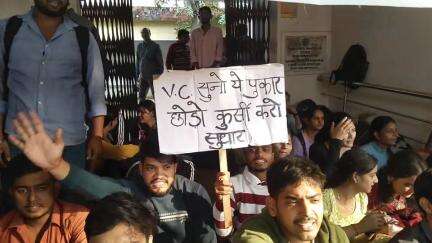 V.C. सुनो ये पुकार
छोड़ो कुर्सी करो
सुधार